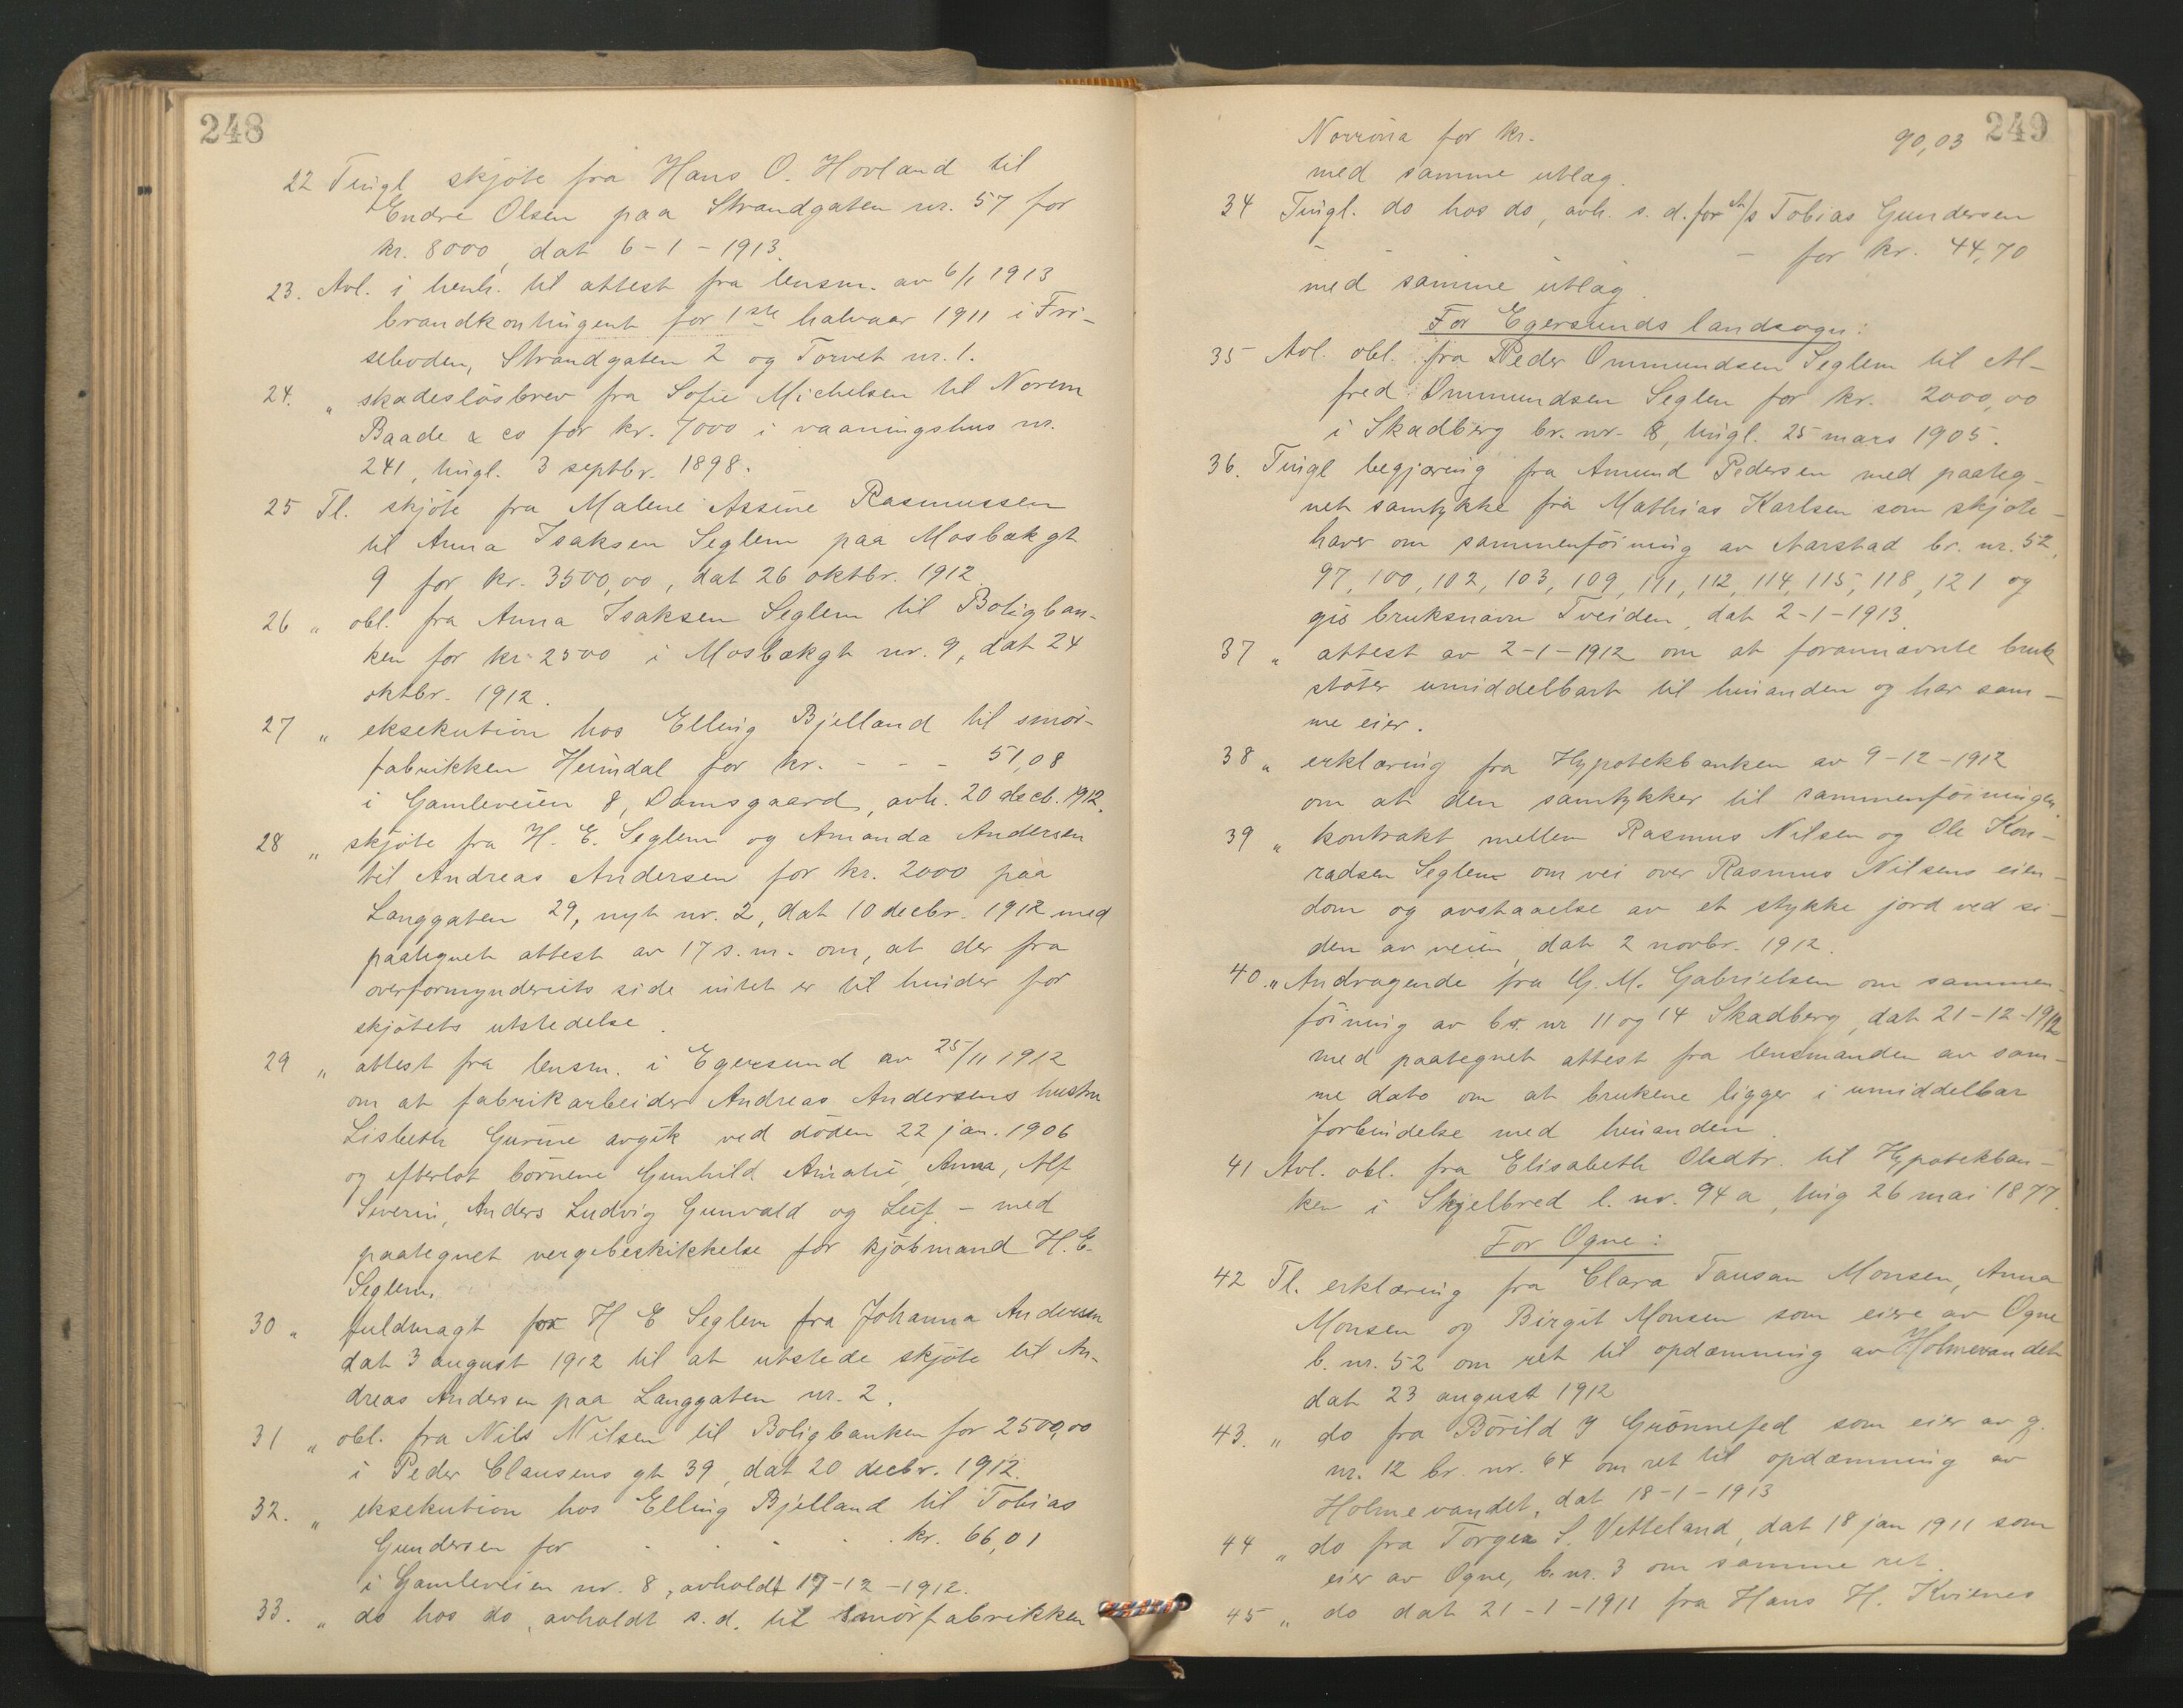 248
22 Tingl skjöte fra Hans O. Hovland til
Endre Olsen paa Strandgaten nr. 57 for
kr. 8000, dat 6-1-1913.
23. Avl. i henh. til attest fra lensm. av 6/1 1913
brandkontingent for 1ste halvaar 1911 i Fri-
seboden, Strandgaten 2 og Torvet nr. 1.
24. " skadeslösbrev fra Sofie Michelsen til Norem
Baade & co for kr. 7000 i vaaningshus nr.
241, tingl. 3 septbr. 1898.
25 Tl. skjöte fra Malene Assine Rasmussen
til Anna Isaksen Seglem paa Mosbækgt
9 for kr. 3500,00, dat 26 oktbr. 1912.
26 " obl. fra Anna Isaksen Seglem til Boligban-
ken for kr 2500 i Mosbækgt nr. 9, dat 24
oktbr. 1912.
27 " eksekution hos Elling Bjelland til smör-
fabrikken Heimdal for kr. - - - 51,08
i Gamleveien 8, Damsgaard, avh. 20 decb. 1912.
28 " skjöte fra H. E. Seglem og Amanda Andersen
til Andreas Andersen for kr. 2000 paa
Langgaten 29, nyt nr. 2, dat 10 decbr. 1912 med
paategnet attest av 17 s. m. om, at der fra
overformynderiets side intet er til hinder for
skjötets utstedelse.
29 " attest fra lensm. i Egersund av 25/11 1912
om at fabrikarbeider Andreas Andersens hustru
Lisbeth Gurine avgik ved döden 22 jan. 1906
og efterlot börnene Gunhild Amalie, Anna, Alf
Severin, Anders Ludvig Gunvald og Leif - med
paategnet vergebeskikkelse for kjöbmand H. E.
Seglem.
30 " fuldmagt for H E Seglem fra Johanna Andersen
dat 3 august 1912 til at utstede skjöte til An-
dreas Andersen paa Langgaten nr. 2.
31 " obl. fra Nils Nilsen til Boligbanken for 2500,00
i Peder Clausens gt 39, dat 20 decbr. 1912.
32. " eksekution hos Elling Bjelland til Tobias
Gundersen for . . . . kr. 66,01
i Gamleveien nr. 8, avholdt 17-12-1912.
33. " do hos do, avholdt s. d. til Smörfabrikken
249
Norröna for kr. 90,03
med samme utlæg.
34 Tingl. do hos do, avh. s. d. for A/s Tobias Gundersen
- - - for kr. 44,70
med samme utlæg.
For Egersunds landsogn:
35 Avl. obl. fra Peder Ommundsen Seglem til Al-
fred Ommundsen Seglem for kr. 2000,00
i Skadberg br. nr. 8, tingl. 25 mars 1905.
36. Tingl begjæring fra Amund Pedersen med paateg-
net samtykke fra Mathias Karlsen som skjöte-
haver om sammenföining av Aarstad br. nr. 52,
97, 100, 102, 103, 109, 111, 112, 114, 115, 118, 121 og
gis bruksnavn Tveiden, dat 2-1-1913.
37 " attest av 2-1-1912 om at forannævnte bruk
stöter umiddelbart til hinanden og har sam-
me eier.
38 " erklæring fra Hypotekbanken av 9-12-1912
om at den samtykker til sammenföiningen.
39 " kontrakt mellem Rasmus Nilsen og Ole Kon-
radsen Seglem om vei over Rasmus Nilsens eien-
dom og avstaaelse av et stykke jord ved si-
den av veien, dat 2 novbr. 1912.
40. " Andragende fra G. M. Gabrielsen om sammen-
föining av br. nr 11 og 14 Skadberg, dat 21-12-1912
med paategnet attest fra lensmanden av sam-
me dato om at brukene ligger i umiddelbar
forbindelse med hinanden.
41 Avl. obl. fra Elisabeth Olsdtr. til Hypotekban-
ken i Skjelbred l. nr. 94 a, ting 26 mai 1877.
For Ogne:
42 Tl. erklæring fra Clara Tausan Monsen, Anna
Monsen og Birgit Monsen som eiere av Ogne
b. nr. 52 om ret til opdæmning av Holmevandet
dat 23 august 1912
43. " do fra Börild Y Grönnefed som eier av g.
nr. 12 br. nr. 64 om ret til opdæmning av
Holmevandet, dat 18-1-1913
44 " do fra Torger S. Vetteland, dat 18 jan 1911 som
eier av Ogne, b. nr. 3 om samme ret.
45 " do dat 21-1-1911 fra Hans H. Kvienes